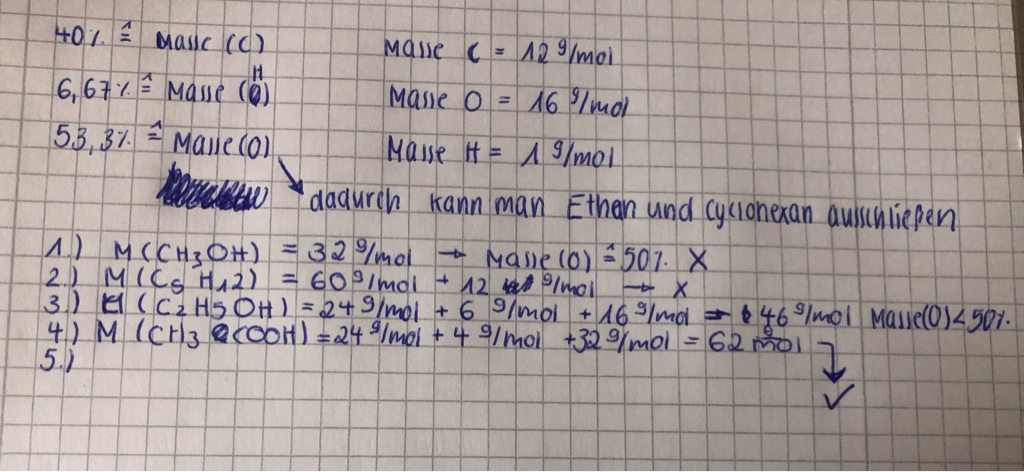 40% ≙ Masse (C) Masse C = 12 g/mol
6,67% ≙ Masse (H) Masse O = 16 g/mol
53,3% ≙ Masse (O) Masse H = 1 g/mol
dadurch kann man Ethan und Cyclohexan ausschließen
1.) M(CH3OH) = 32 g/mol → Masse (O) ≙ 50% X
2.) M(C5H12) = 60 g/mol + 12 g/mol → X
3.) M(C2H5OH) = 24 g/mol + 6 g/mol + 16 g/mol = 46 g/mol Masse(O) < 50%
4.) M(CH3COOH) = 24 g/mol + 4 g/mol + 32 g/mol = 62 g/mol ↴
5.) ✓